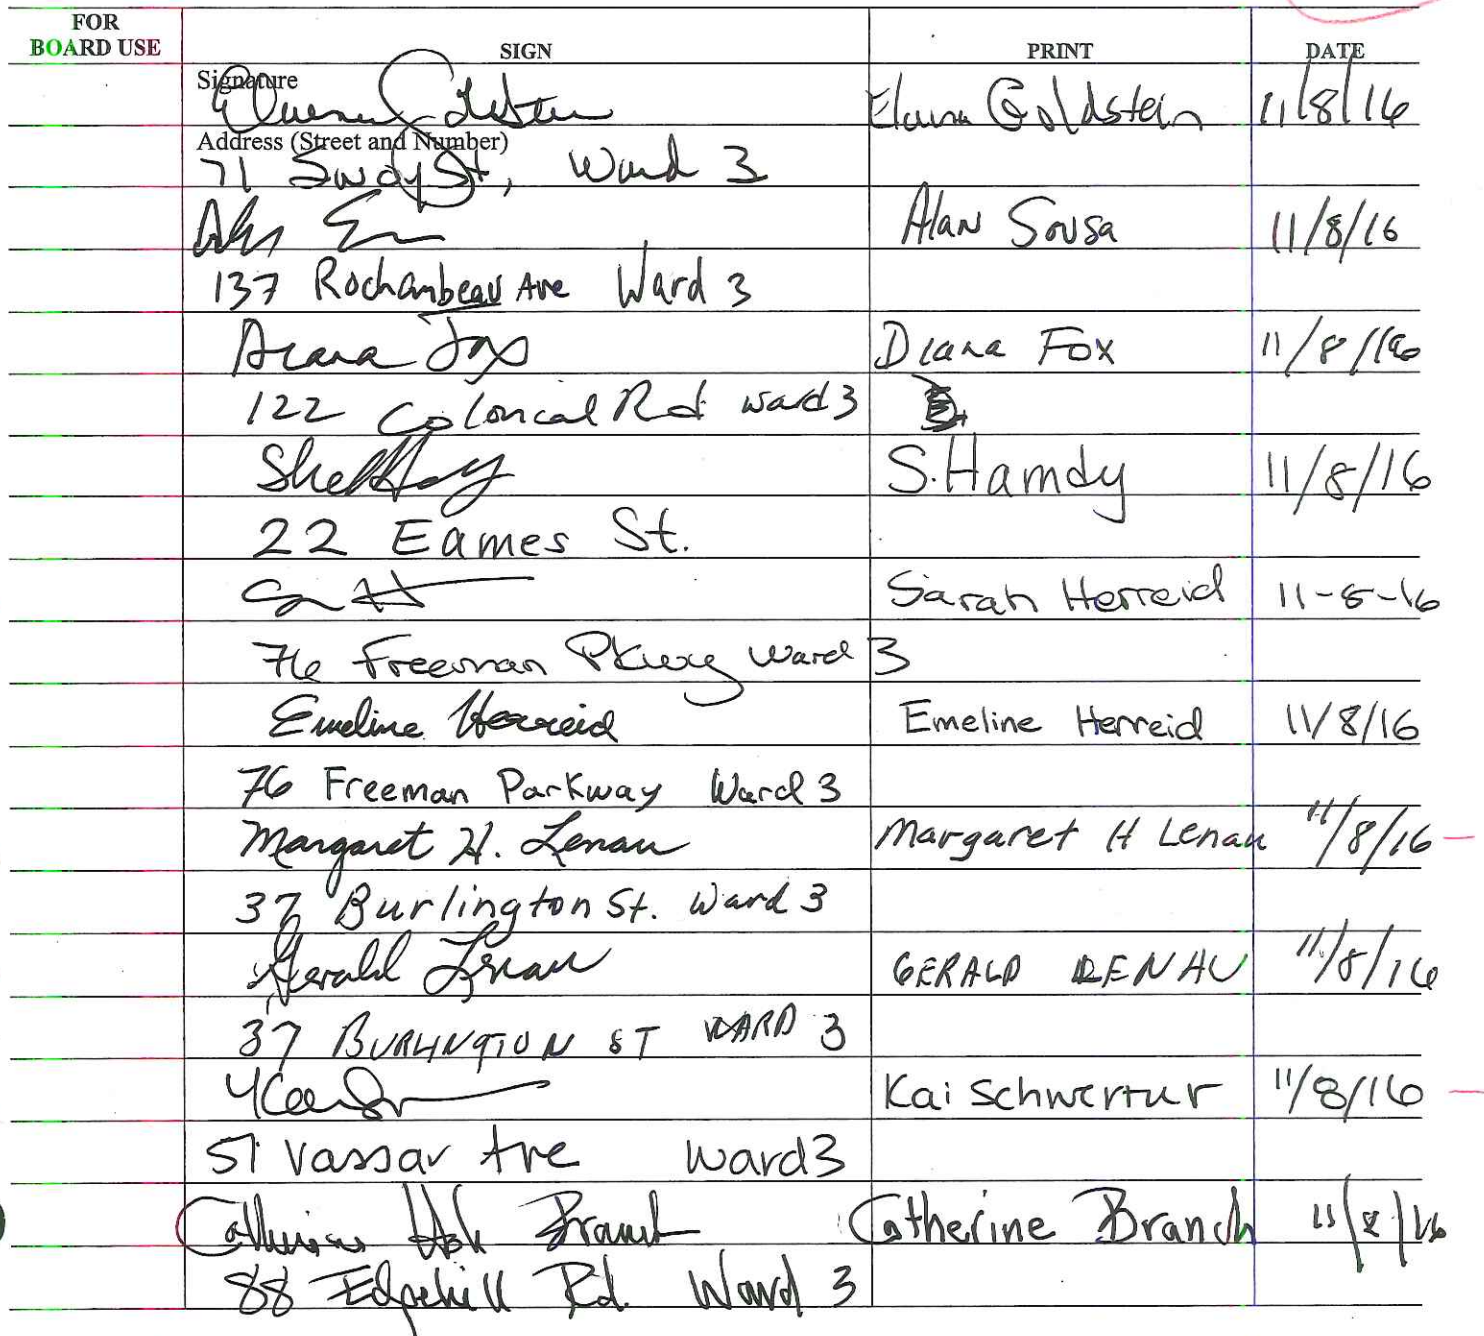 FOR
BOARD USE SIGN PRINT DATE
Signature
Elaina Goldstein Elaina Goldstein 11/8/16
Address (Street and Number)
71 St, Ward 3
Alan Sousa 11/8/16
137 Rochambeau Ave Ward 3
Diana Fox Diana Fox 11/8/16
122 Colonial Rd ward 3
S. Hamdy 11/8/16
22 Eames St.
Sarah Herreid 11-8-16
76 Freeman Pkwy Ward 3
Emeline Herreid Emeline Herreid 11/8/16
76 Freeman Parkway Ward 3
Margaret H. Lenau Margaret H Lenau 11/8/16
37 Burlington St. Ward 3
Gerald Lenau GERALD LENAU 11/8/16
37 BURLINGTON ST WARD 3
Kai 11/8/16
Vassar Ave Ward 3
Catherine Branch Catherine Branch 11/8/16
88 Edgehill Rd. Ward 3